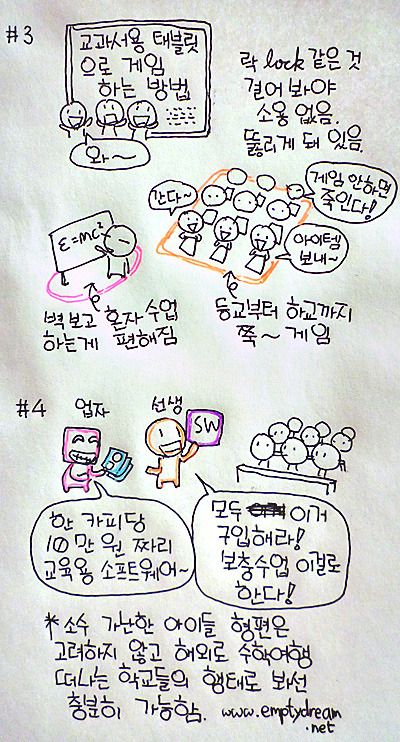 #3
교과서용 태블릿
으로 게임
하는 방법
와~
락 lock 같은 것
걸어 봐야
소용 없음.
뚫리게 돼 있음.
간다~
게임 안하면
죽인다!
아이템
보내~
E=mc²
벽 보고 혼자 수업
하는게 편해짐
등교부터 하교까지
쭉~ 게임
#4
업자
선생
SW
한 카피당
10만원 짜리
교육용 소프트웨어~
모두 이거
구입해라!
보충수업 이걸로
한다!
*소수 가난한 아이들 형편은
고려하지 않고 해외로 수학여행
떠나는 학교들의 행태로 봐선
충분히 가능함. www.emptydream
.net